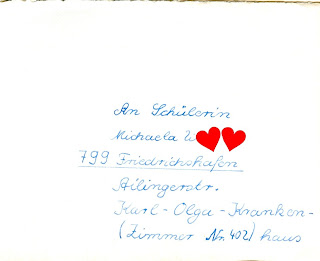 An Schülerin
Michaela W
799 Friedrichshafen
Ailingerstr.
Karl-Olga-Kranken-
(Zimmer Nr. 402) haus